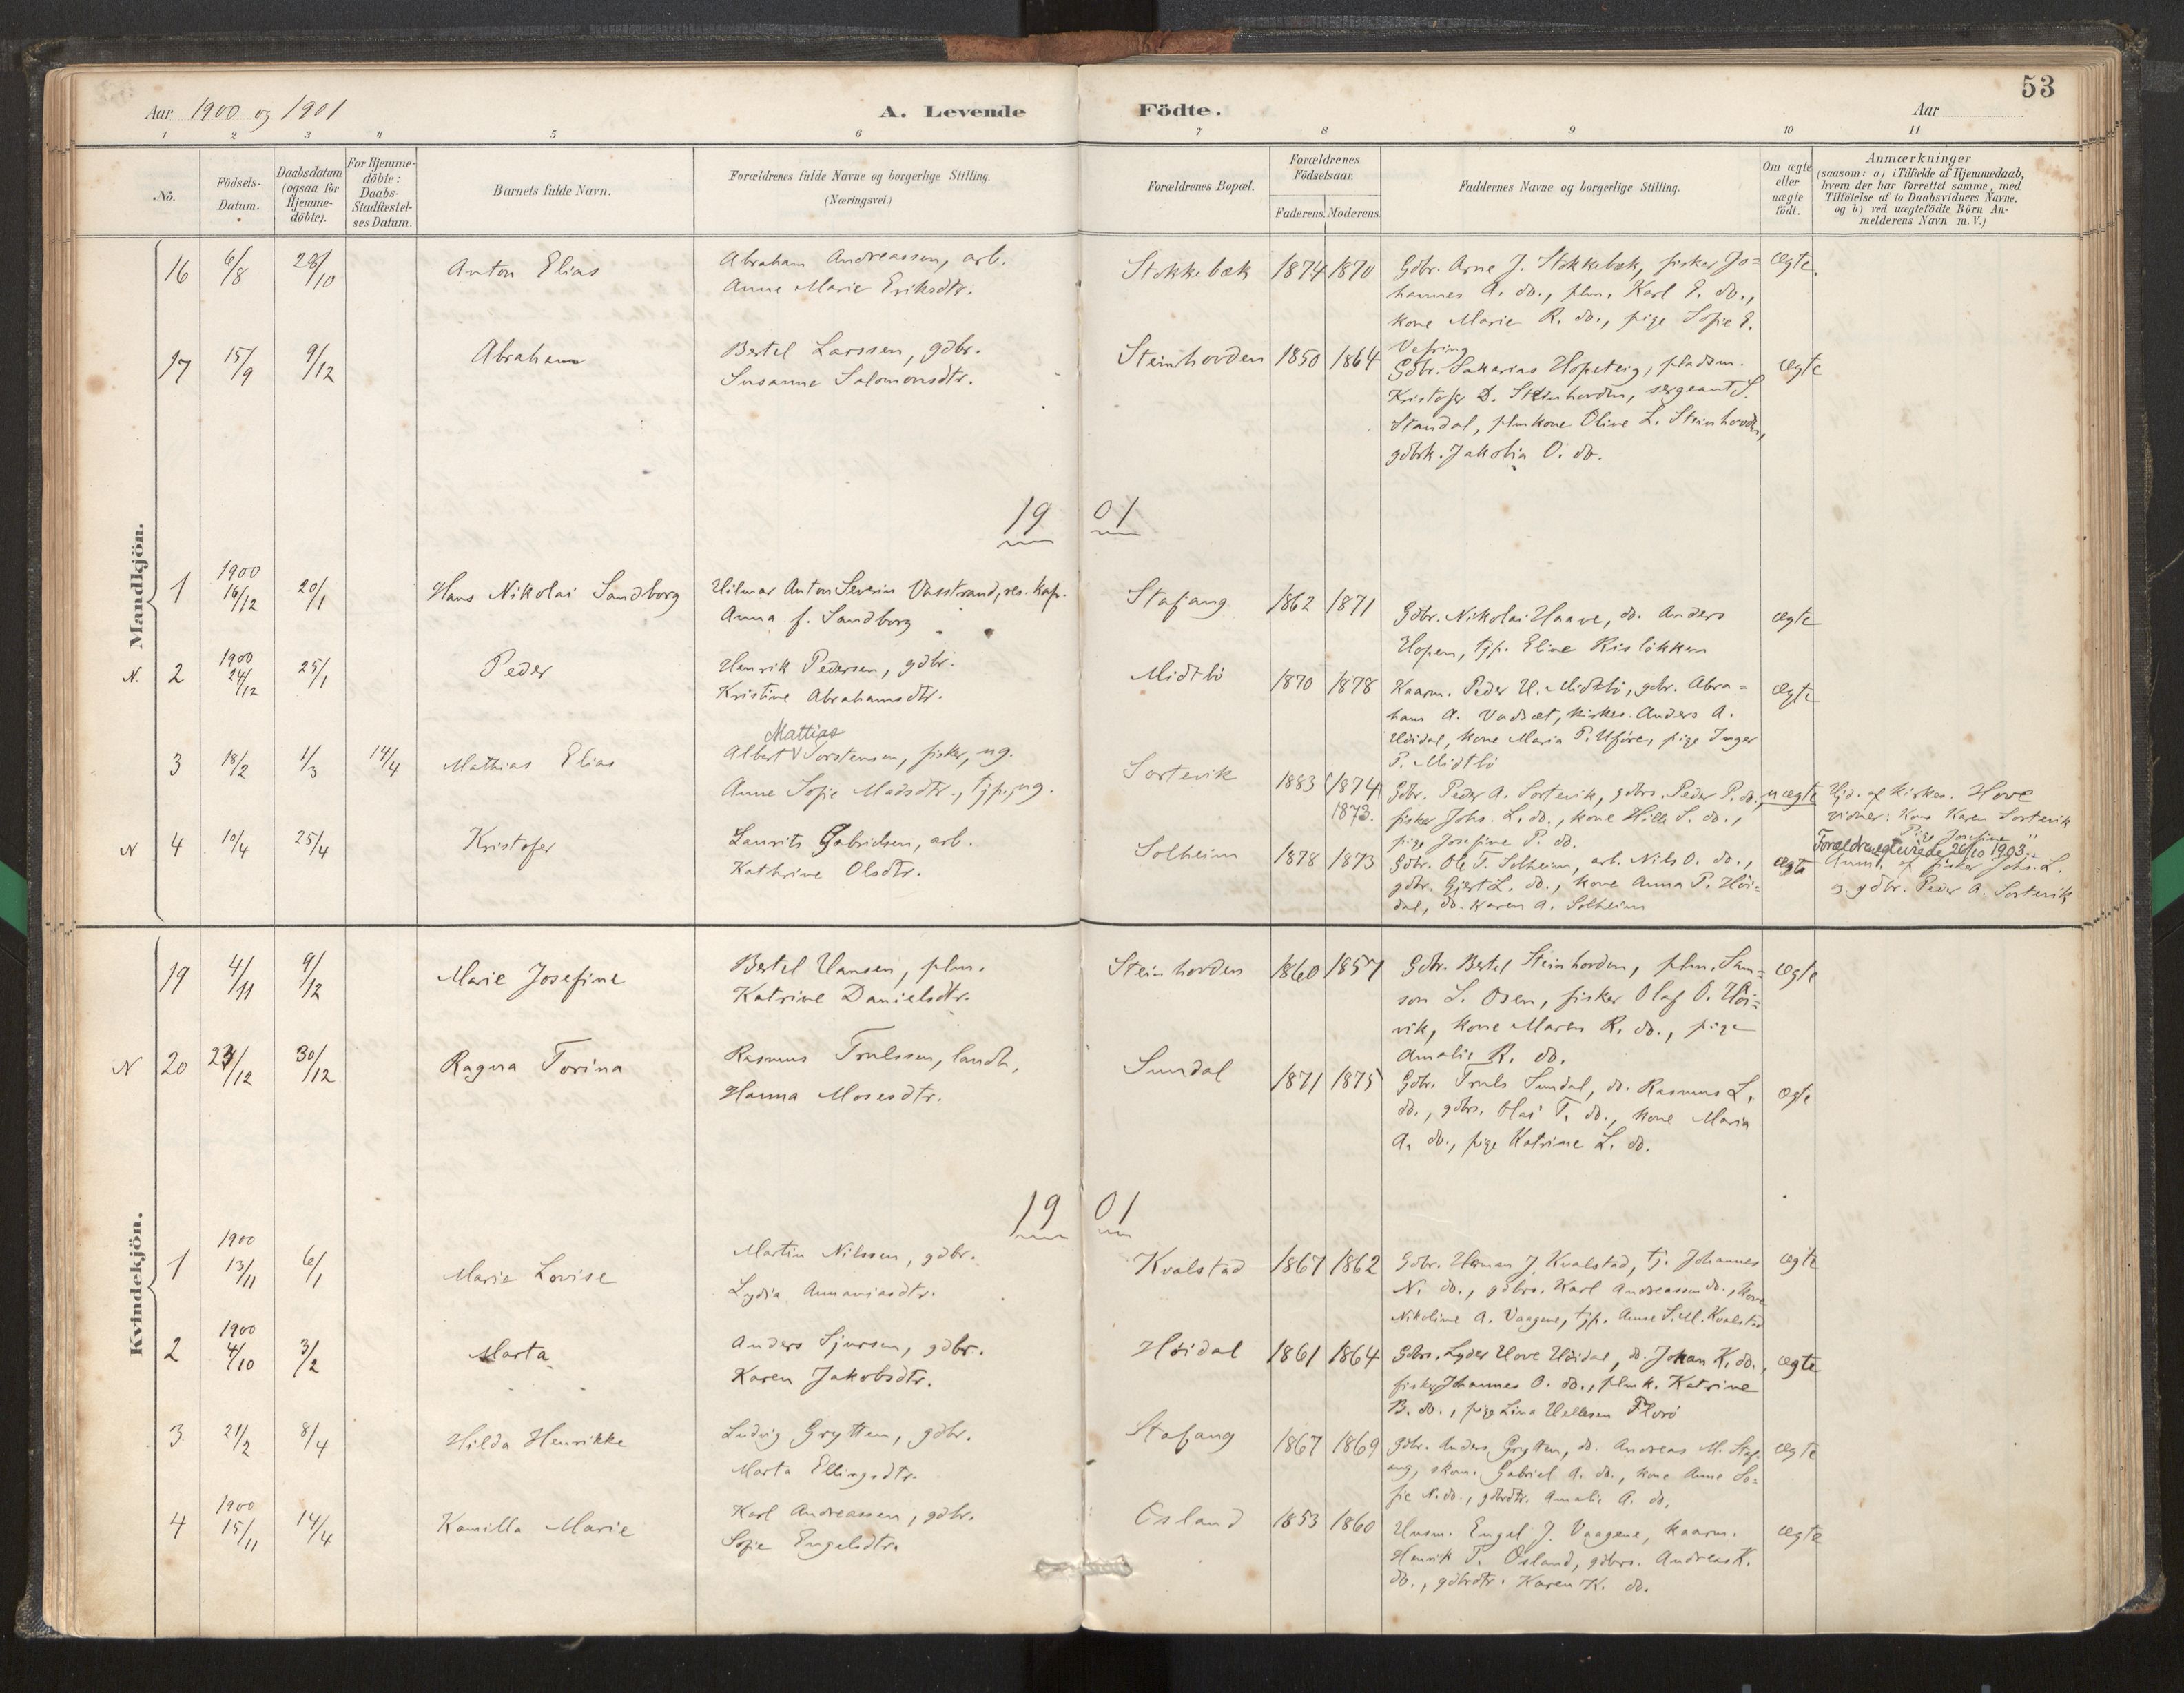 53
Aar 1900 og 1901
A. Levende Födte.
Aar
1 2 3 4 5 6 7 8 9 10 11
No.
Födsels-
Datum.
Daabsdatum
(ogsaa for
Hjemme-
döbte).
For Hjemme-
döbte:
Daabs-
Stadfæstel-
ses Datum.
Barnets fulde Navn.
Forældrenes fulde Navne og borgerlige Stilling.
(Næringsvei.)
Forældrenes Bopæl.
Forældrenes
Födselsaar.
Faderens. Moderens.
Faddernes Navne og borgerlige Stilling.
Om ægte
eller
uægte
födt.
Anmærkninger
(saasom: a) i Tilfælde af Hjemmedaab,
hvem der har forrettet samme, med
Tilföielse af to Daabsvidners Navne.
og b) ved uægtefödte Börn An-
melderens Navn m. V.)
Mandkjön.
16 6/8 28/10 Anton Elias
Abraham Andreassen, arb.
Anne Marie Eriksdtr.
Stokkebæk 1874 1870
Gdbr. Arne J. Stokkebæk, fisker Jo=
hannes A. do., plm. Karl E. do.,
kone Marie R. do., pige Sofie E.
Vefring
ægte.
17 15/9 9/12 Abraham
Bertel Larssen, gdbr.
Susanne Salomonsdtr.
Steinhovden 1850 1864
Gdbr. Sakarias Hopeteig, pladsm.
Kristofer D. Steinhovden, sergeant S.
Standal, plmkone Oline L. Steinhovden,
gdbrk. Jakobia O. do.
ægte
1901
1 1900
16/12 20/1 Hans Nikolai Sandborg
Hilmar Anton Severin Vasstrand, res. kap.
Anna f. Sandborg
Stafang 1862 1871
Gdbr. Nikolai Haave, do. Anders
Hopen, tjp. Eline Rislökken
ægte
N. 2 1900
24/12 25/1 Peder
Henrik Pedersen, gdbr.
Kristine Abrahamsdtr.
Midtbö 1870 1878
Kaarm. Peder H. Midtbö, gbr. Abra=
ham A. Vadsæt, kirkes. Anders A.
Höidal, kone Maria P. Uföre, pige Inger
P. Midtbö
ægte
3 18/2 1/3 14/4 Mathias Elias
Mattias
Albert Torstensen, fisker, ug.
Anne Sofie Madsdtr., tjp., ug.
Sortevik 1883 1874
1873.
Gdbr. Peder A. Sortevik, gdbrs. Peder P. do.,
fisker Johs. L. do., kone Hille S. do.,
pige Josefine P. do.
uægte
Hjd. af kirkes. Hove
vidner: Kone Karen Sortevik
Pige Josefine "
Forældre egteviede 26/10 1903.
Anm. af fisker Johs. L.
og gdbr. Peder A. Sortevik
N 4 10/4 25/4 Kristofer
Laurits Gabrielsen, arb.
Kathrine Olsdtr.
Solheim 1878 1873
Gdbr. Ole T. Solheim, arb. Nils O. do.,
gdbr. Gjert L. do., kone Anna P. Höi=
dal, do. Karen A. Solheim
ægte
Kvindekjön.
19 4/11 9/12 Marie Josefine
Bertel Hansen, plm.
Katrine Danielsdtr.
Steinhovden 1860 1857
Gdbr. Bertel Steinhovden, plm. Sam=
son S. Osen, fisker Olaf O. Höi=
vik, kone Maren R. do., pige
Amalie R. do.
ægte
N 20 23/12 30/12 Ragna Torina
Rasmus Trulssen, landh.
Hanna Mosesdtr.
Sundal 1871 1875
Gdbr. Truls Sundal, do. Rasmus L.
do., gdbrs. Olai T. do., kone Maria
A. do., pige Katrine L. do.
ægte
1901
1 1900
13/11 6/1 Marie Lovise
Martin Nilssen, gdbr.
Lydia Annaniasdtr.
Kvalstad 1867 1862
Gdbr. Herman J. Kvalstad, tj. Johannes
N. do., gdbrs. Karl Andreassen do., kone
Nikoline A. Vaagene, tjp. Anne S. M. Kvalstad
ægte
2 1900
4/10 3/2 Marta
Anders Sjursen, gdbr.
Karen Jakobsdtr.
Höidal 1861 1864
Gdbr. Lyder Hove Höidal, do. Johan K. do.,
fisker Johannes O. do., plm k. Katrine
B. do., pige Lina Hellesen Florö
ægte
3 21/2 8/4 Hilda Henrikke
Ludvig Grytten, gdbr.
Marta Ellingsdtr.
Stafang 1867 1869
Gdbr. Anders Grytten, do. Andreas M. Staf-
ang, skom. Gabriel A. do., kone Anne So=
fie N. do., gdbrdtr. Amalie A. do.
ægte
4 1900
15/11 14/4 Kamilla Marie
Karl Andreassen, gdbr.
Sofie Engelsdtr.
Osland 1853 1860
Husm. Engel J. Vaagene, kaarm.
Henrik T. Osland, gdbrs. Andreas K.
do., gdbrdtr. Karen K. do.
ægte